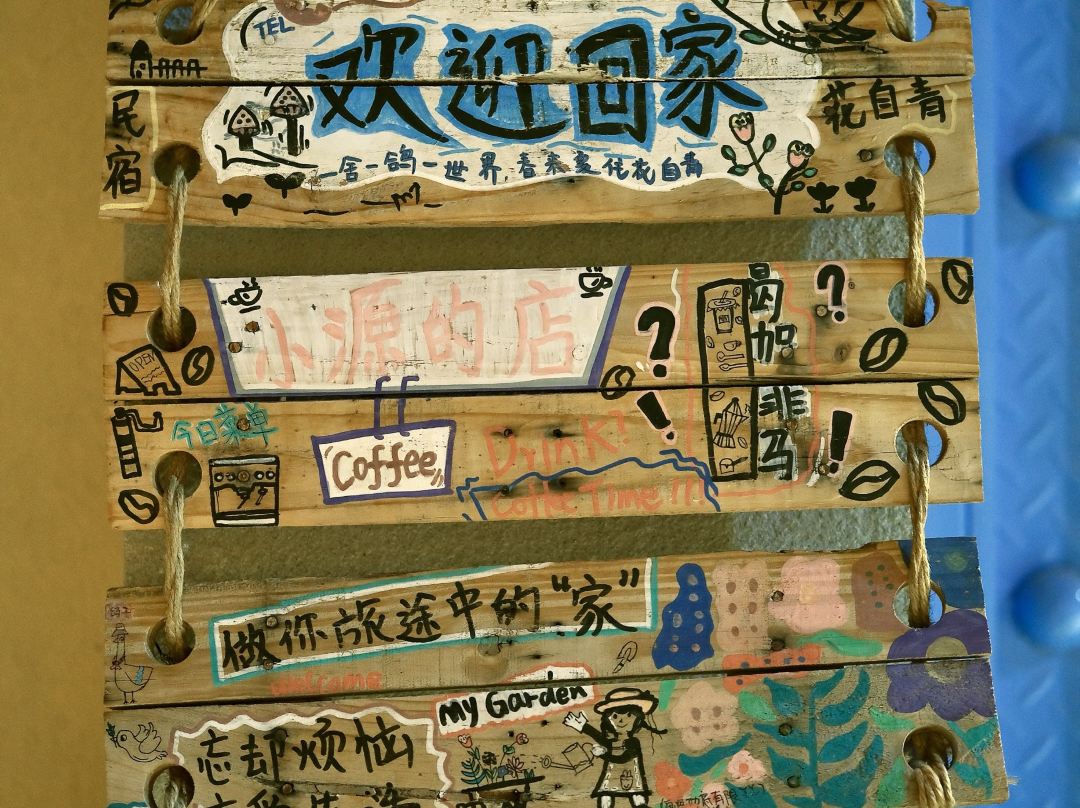 TEL
欢迎回家
民宿
花自青
一舍一鸽一世界
花自青
小源的店
OPEN
今日菜单
Coffee
Drink!
Coffee Time!!!
曷加
非马
?
?
!
!
做你旅途中的“家”
welcome
My Garden
忘却烦恼